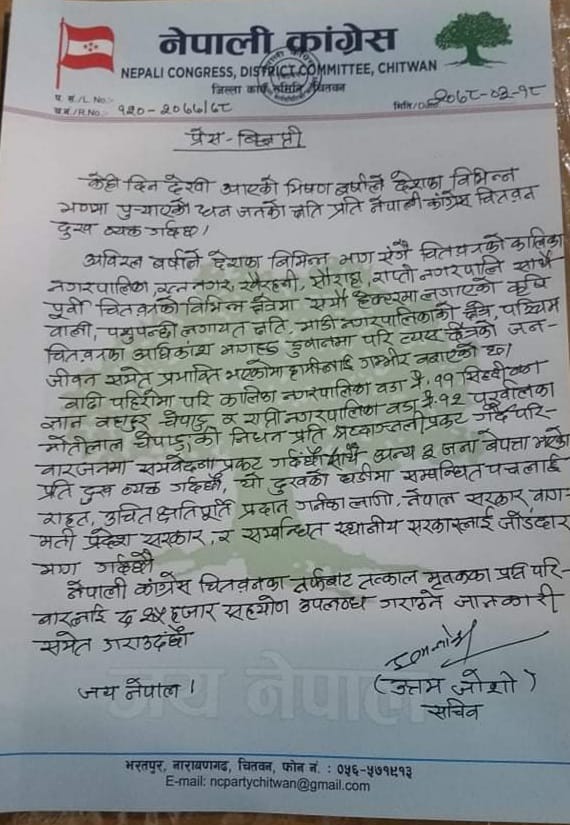 नेपाली कांग्रेस
NEPALI CONGRESS, DISTRICT COMMITTEE, CHITWAN
जिल्ला कार्य समिति, चितवन
प. सं./L. No:-
च.नं./R.No:- १२०-२०७७/७८
मिति/Date: २०७८-०३-१८
प्रेस-विज्ञप्ती
केही दिन देखी आएको भिषण बर्षाले देशका विभिन्न
भागमा पुर्‍याएको धन जनको क्षति प्रति नेपाली कांग्रेस चितवन
दुःख व्यक्त गर्दछ।
अविरल बर्षाले देशका विभिन्न भाग सँगै चितवनको कालिका
नगरपालिका, रत्ननगर, खैरहनी, सौराहा, राप्ती नगरपालि साथै
पूर्वी चितवनको विभिन्न क्षेत्रमा सयौं हेक्टरमा लगाएको कृषि
वाली, पशुपन्छी लगायत क्षति, माडी नगरपालिकाको क्षेत्र, पश्चिम
चितवनका अधिकांश भागहरु डुवानमा परि त्यस क्षेत्रको जन-
जीवन समेत प्रभावित भएकोमा हामीलाई गम्भीर बनाएको छ।
बाढी पहिरोमा परि कालिका नगरपालिका वडा नं. ११
ज्ञान बहादुर चेपाङ र राप्ती नगरपालिका वडा नं. १२
मोतीलाल चेपाङ को निधन प्रति श्रद्धाञ्जली प्रकट गर्दै परि-
वारजनमा समवेदना प्रकट गर्दछौं साथै अन्य ३ जना बेपत्ता भएको
प्रति दुःख व्यक्त गर्दछौं, यो दुःखको घडीमा सम्बन्धित पक्षलाई
राहत, उचित क्षतिपूर्ति प्रदान गर्नका लागी, नेपाल सरकार, वाग-
मती प्रदेश सरकार, र सम्बन्धित स्थानीय सरकारलाई जोडदार
माग गर्दछौं
नेपाली कांग्रेस चितवनका तर्फबाट तत्काल मृतकका प्रति परि-
वारलाई रु २५ हजार सहयोग उपलब्ध गराउने जानकारी
समेत गराउदछौं
जय नेपाल।
(उत्तम जोशी)
सचिव
जय नेपाल
भरतपुर, नारायणगढ, चितवन, फोन नं. : ०५६-५७१९१३
E-mail: ncpartychitwan@gmail.com